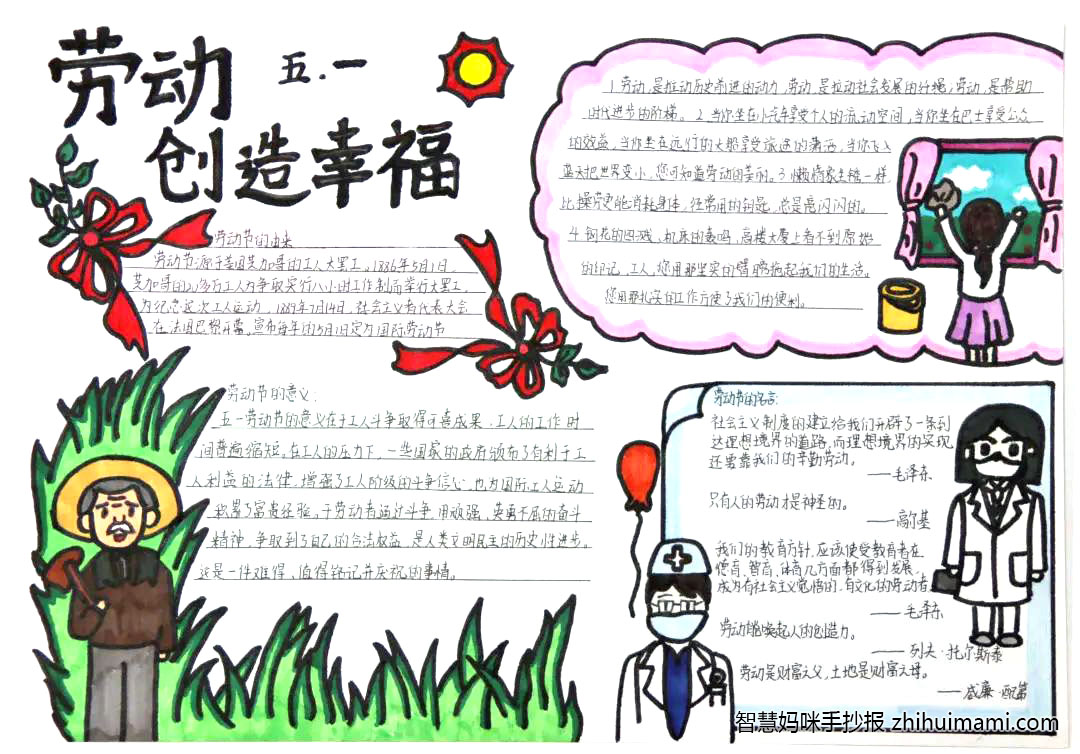 劳动
五.一
创造幸福
劳动节的由来
劳动节源于美国芝加哥的工人大罢工。1886年5月1日,
芝加哥的20多万工人为争取实行八小时工作制而举行大罢工,
为纪念这次工人运动,1889年7月14日,社会主义者代表大会
在法国巴黎开幕,宣布每年的5月1日定为国际劳动节
1 劳动,是拉动历史前进的动力,劳动,是拉动社会发展的纤绳,劳动,是帮助
时代进步的阶梯。2 当你坐在小汽车享受个人的流动空间,当你坐在巴士享受公众
的效益,当你坐在远行的大船享受旅途的潇洒,当你飞入
蓝天把世界变小,您可知道劳动的美丽。3 懒惰象生锈一样,
比操劳更能消耗身体,经常用的钥匙,总是亮闪闪的。
4 钢花的四溅,机床的轰鸣,高楼大厦上看不到原始
的印记,工人,您用那坚实的臂膀托起我们的生活。
您用那扎实的工作方便了我们的便利。
劳动节的意义:
五一劳动节的意义在于工人斗争取得可喜成果,工人的工作时
间普遍缩短。在工人的压力下,一些国家的政府颁布了有利于工
人利益的法律,增强了工人阶级的斗争信心,也为国际工人运动
积累了富贵经验。于劳动者通过斗争,用顽强、英勇不屈的奋斗
精神,争取到了自己的合法权益,是人类文明民主的历史性进步。
这是一件难得、值得铭记并庆祝的事情。
劳动节的名言:
社会主义制度的建立给我们开辟了一条到
达理想境界的道路,而理想境界的实现
还需靠我们的辛勤劳动。
——毛泽东
只有人的劳动才是神圣的。
——高尔基
我们的教育方针,应该使受教育者在
德育、智育、体育几方面都得到发展,
成为有社会主义觉悟的,有文化的劳动者。
——毛泽东
劳动能唤起人的创造力。
——列夫·托尔斯泰
劳动是财富之父,土地是财富之母。
——威廉·配第
智慧妈咪手抄报 zhihuimami.com